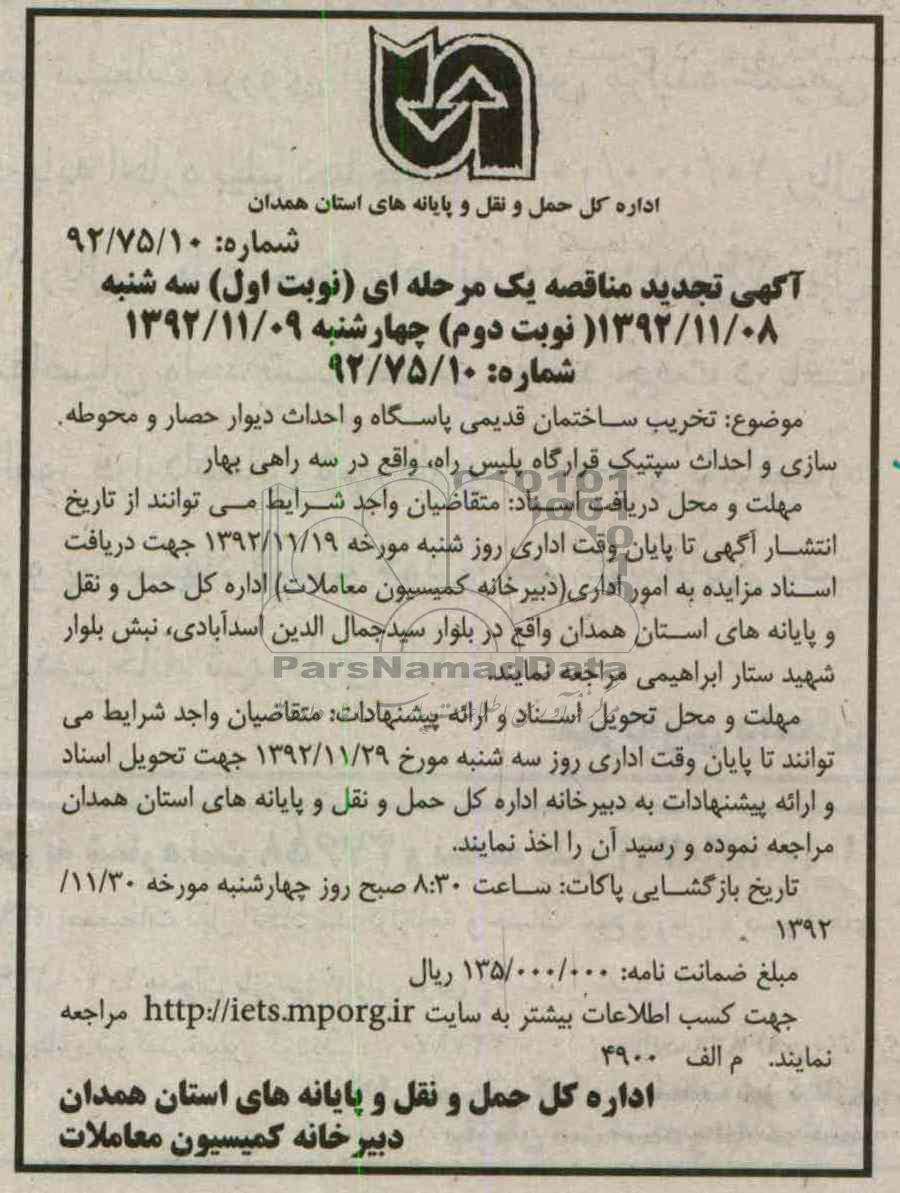 اداره کل حمل و نقل و پایانه های استان همدان
شماره: ۹۲/۷۵/۱۰
آگهی تجدید مناقصه یک مرحله ای (نوبت اول) سه شنبه
۱۳۹۲/۱۱/۰۸( نوبت دوم) چهارشنبه ۱۳۹۲/۱۱/۰۹
شماره: ۹۲/۷۵/۱۰
موضوع: تخریب ساختمان قدیمی پاسگاه و احداث دیوار حصار و محوطه
سازی و احداث سپتیک قرارگاه پلیس راه، واقع در سه راهی بهار
مهلت و محل دریافت اسناد: متقاضیان واجد شرایط می توانند از تاریخ
انتشار آگهی تا پایان وقت اداری روز شنبه مورخه ۱۳۹۲/۱۱/۱۹ جهت دریافت
اسناد مزایده به امور اداری(دبیرخانه کمیسیون معاملات) اداره کل حمل و نقل
و پایانه های استان همدان واقع در بلوار سیدجمال الدین اسدآبادی، نبش بلوار
شهید ستار ابراهیمی مراجعه نمایند.
ParsNamadData
مهلت و محل تحویل اسناد و ارائه پیشنهادات: متقاضیان واجد شرایط می
توانند تا پایان وقت اداری روز سه شنبه مورخ ۱۳۹۲/۱۱/۲۹ جهت تحویل اسناد
و ارائه پیشنهادات به دبیرخانه اداره کل حمل و نقل و پایانه های استان همدان
مراجعه نموده و رسید آن را اخذ نمایند.
تاریخ بازگشایی پاکات: ساعت ۸:۳۰ صبح روز چهارشنبه مورخه ۱۱/۳۰/
۱۳۹۲
مبلغ ضمانت نامه: ۱۳۵/۰۰۰/۰۰۰ ریال
جهت کسب اطلاعات بیشتر به سایت http://iets.mporg.ir مراجعه
نمایند. م الف ۴۹۰۰
اداره کل حمل و نقل و پایانه های استان همدان
دبیرخانه کمیسیون معاملات